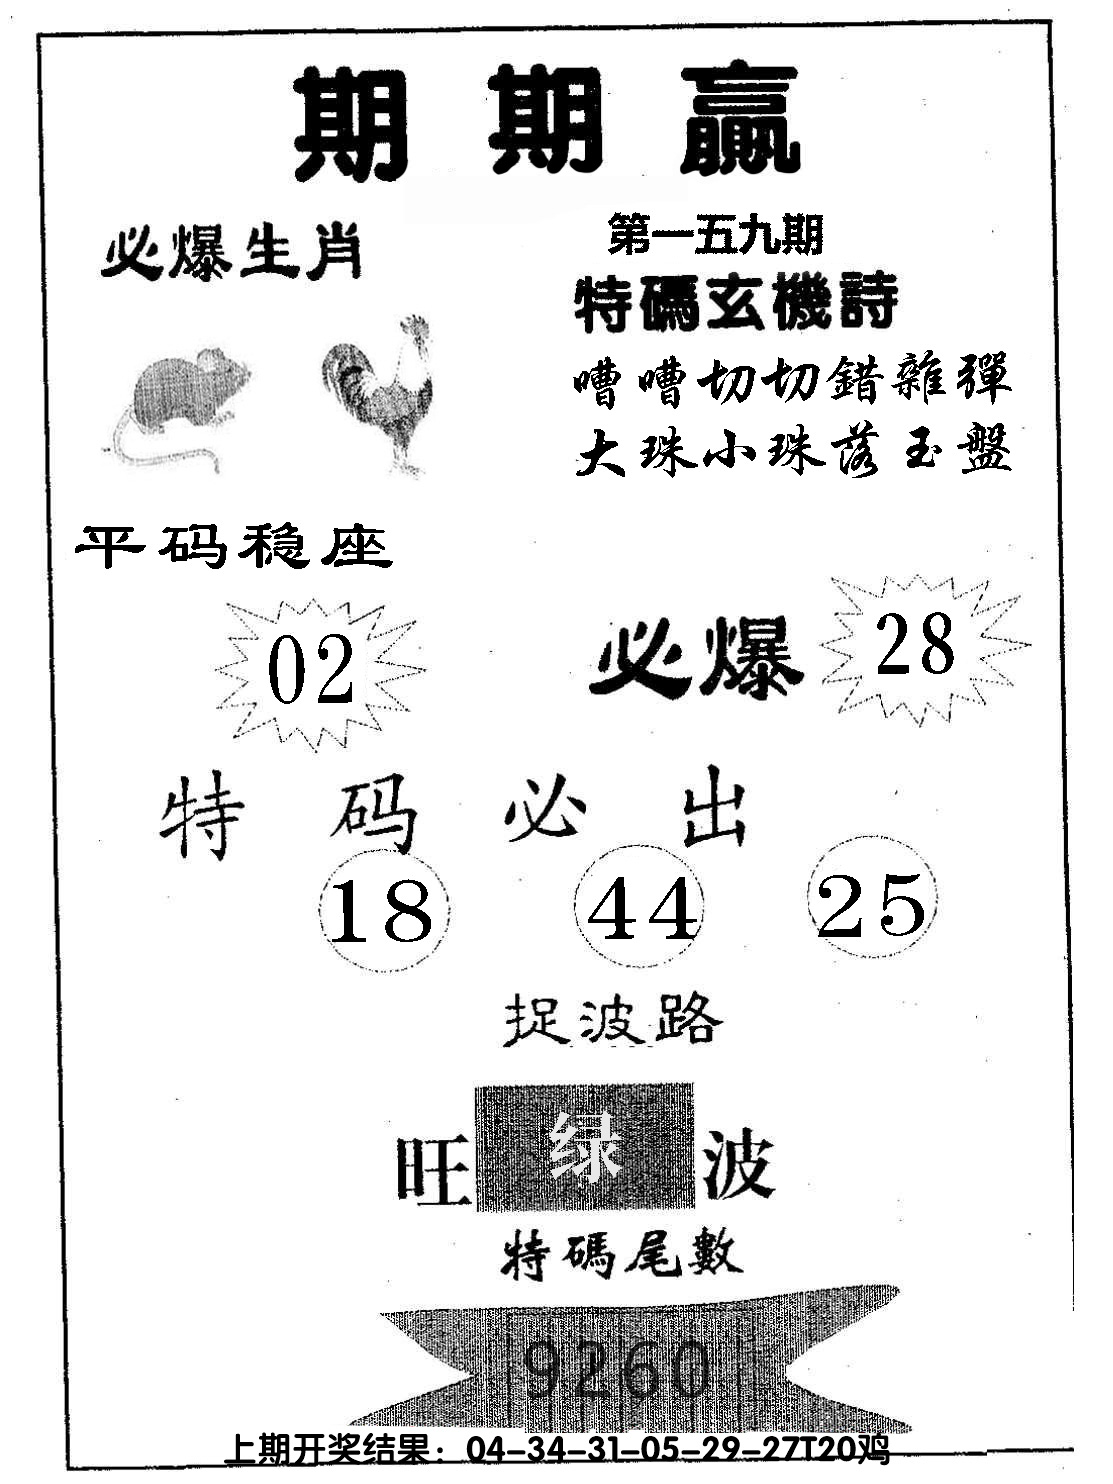 期期赢
必爆生肖
第一五九期
特碼玄機詩
嘈嘈切切錯雜彈
大珠小珠落玉盤
平码稳座
02
必爆 28
特码必出
18 44 25
捉波路
旺 绿 波
特碼尾數
9260
上期开奖结果：04-34-31-05-29-27T20鸡